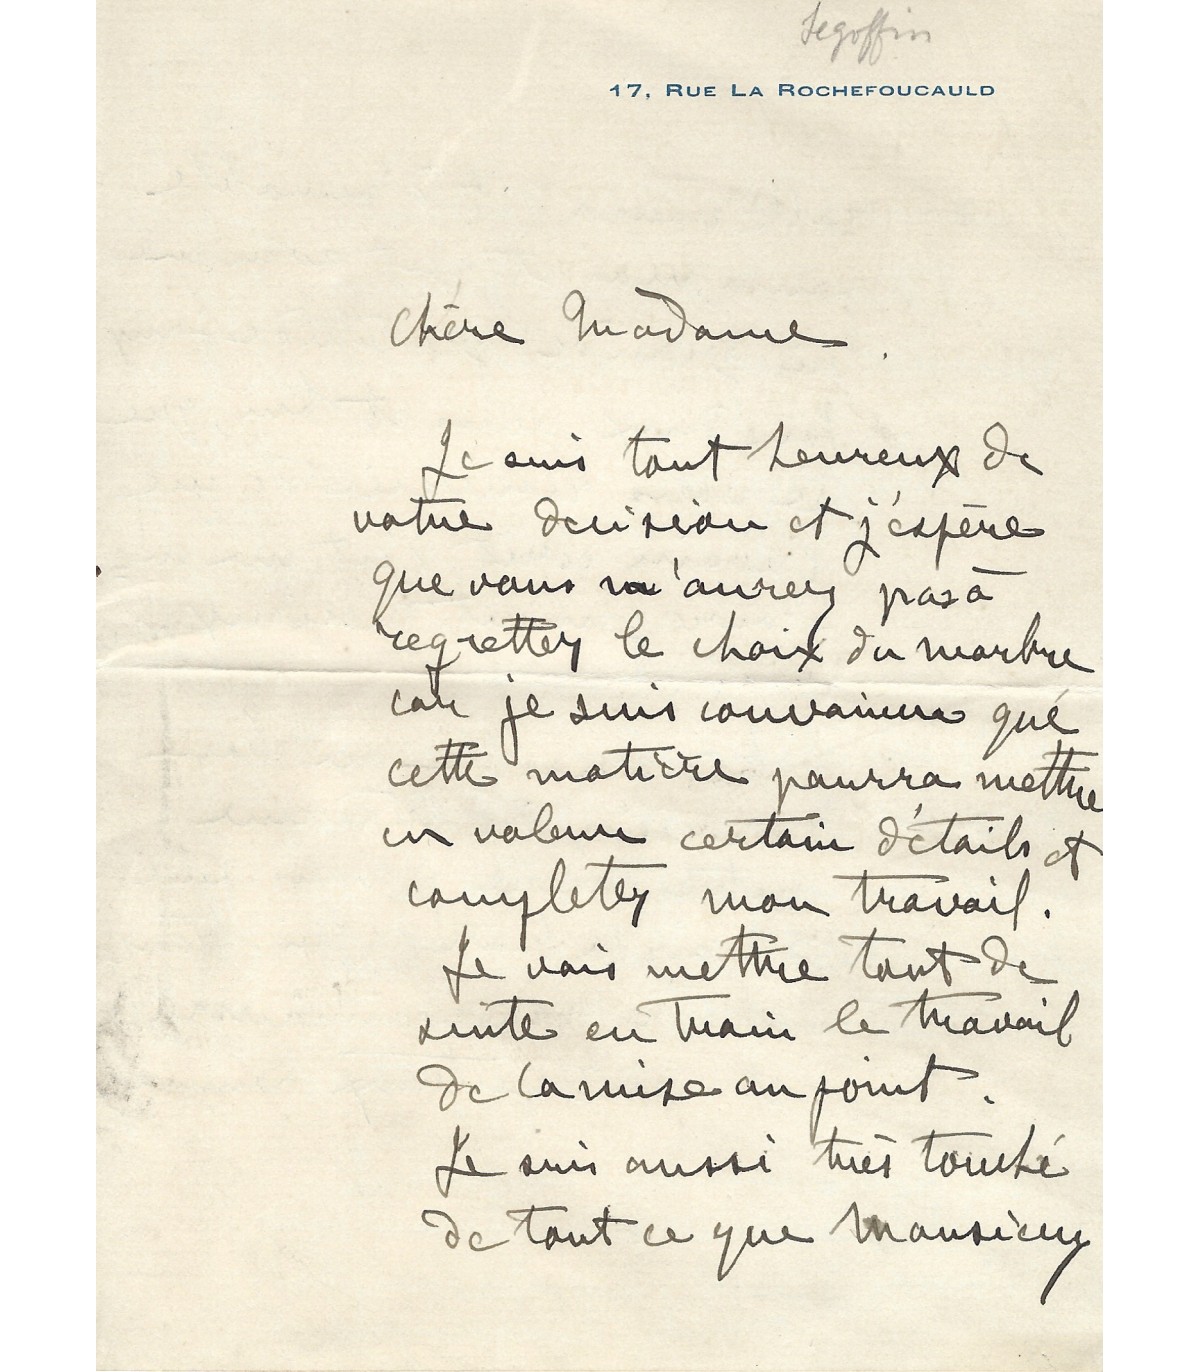 Segoffin
17, RUE LA ROCHEFOUCAULD
Chère Madame.
Je suis tout heureux de
votre decision et j'espère
que vous n'aurez pas à
regretter le choix du marbre
car je suis convaincu que
cette matière pourra mettre
en valeur certain détails et
completer mon travail.
Je vais mettre tout de
suite en train le travail
de la mise au point.
Je suis aussi très touché
de tout ce que Monsieur